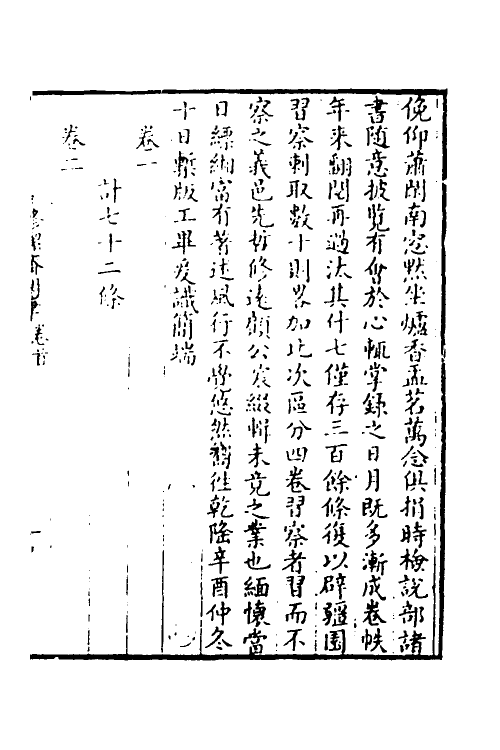 俛仰蕭閒南窓黙坐爐香盂茗萬念俱捐時檢說部諸
書隨意披覧有會於心輒掌錄之日月既多漸成卷帙
年来翻閱再過汰其什七僅存三百餘條復以辟疆園
習察刺取數十則畧加比次區分四卷習察者習而不
察之義邑先哲修遠顧公裒綴輯未竟之業也緬懷當
日縹緗富有著述風行不覺悠然嚮往乾隆辛酉仲冬
十日槧版工畢爰識簡端
卷一
計七十二條
卷二
卷首
一